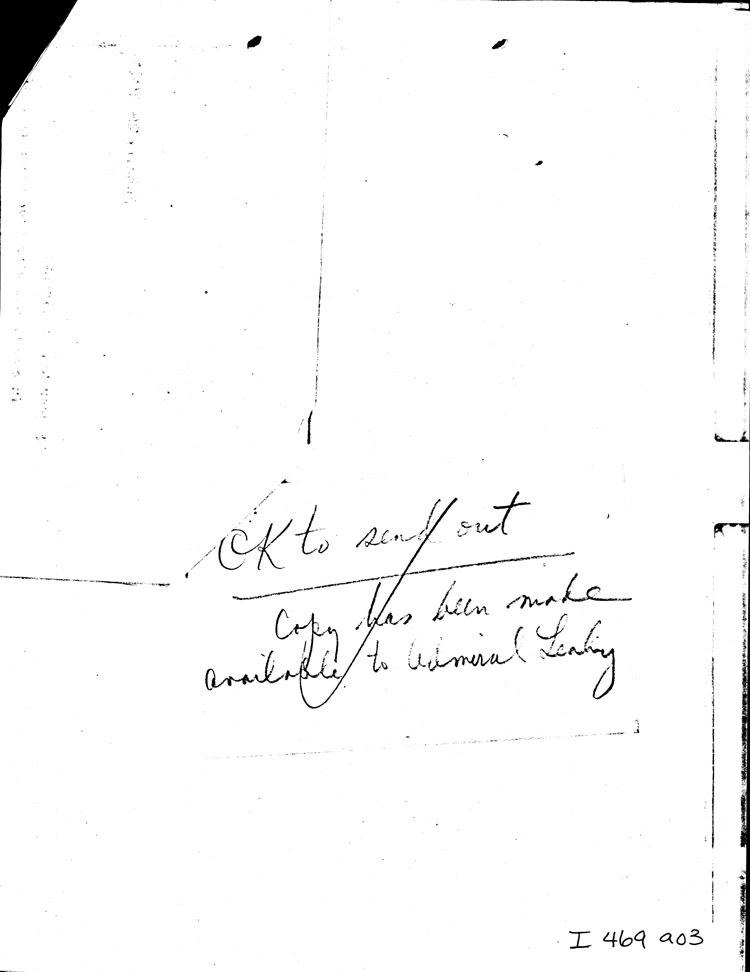 OK to send out
Copy has been made
available to Admiral Leahy
I 469 a03